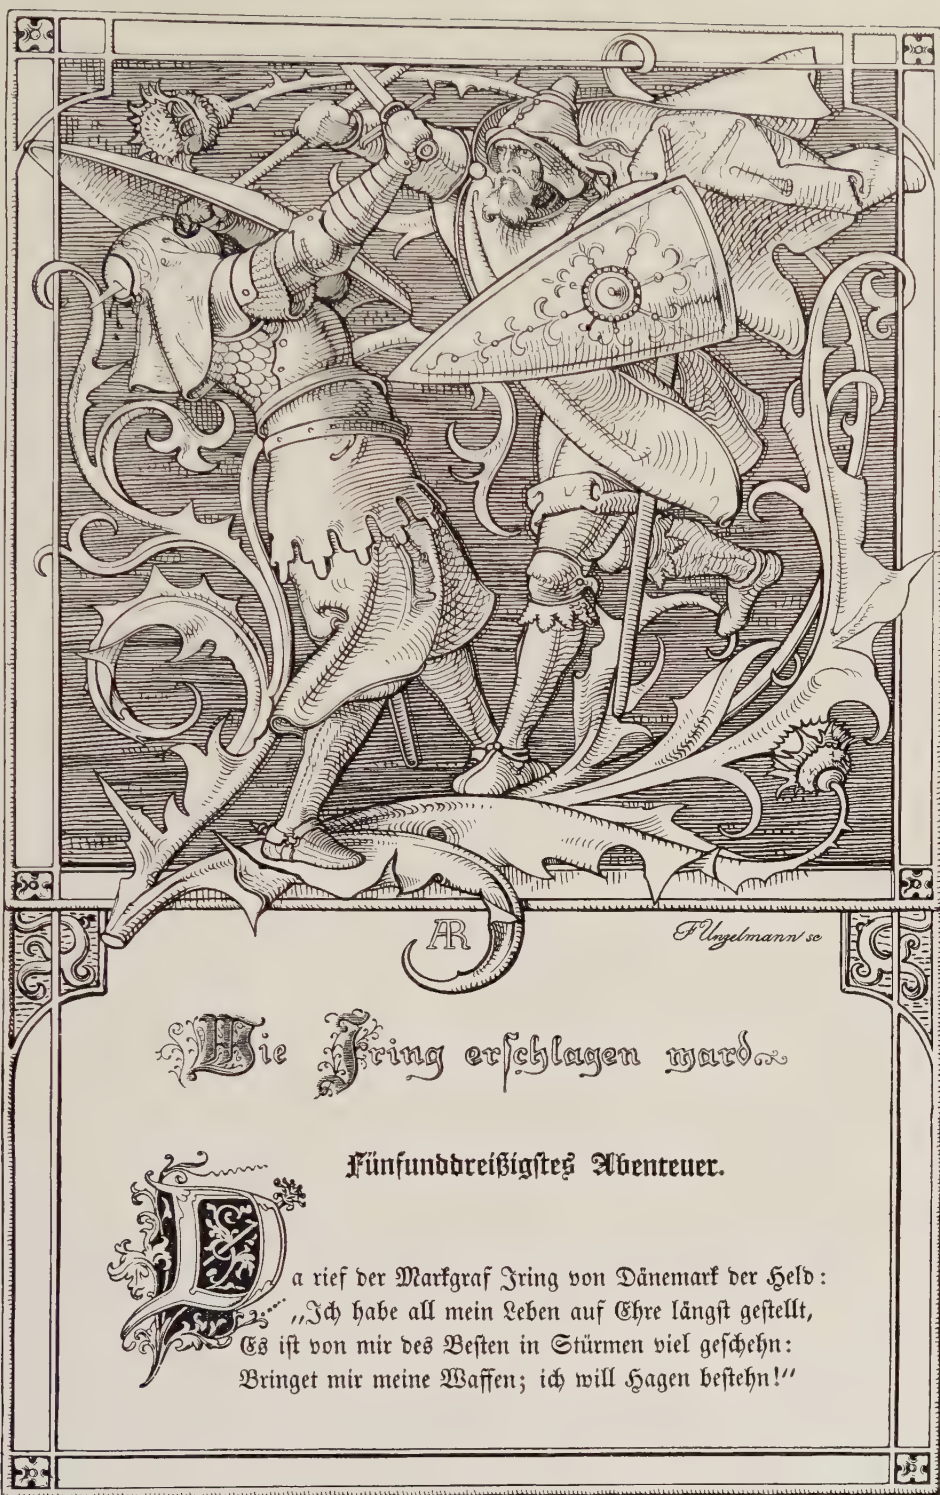 AR
F Unzelmann sc
Wie Iring erschlagen ward
Fünfunddreißigstes Abenteuer.
Da rief der Markgraf Iring von Dänemark der Held:
„Ich habe all mein Leben auf Ehre längst gestellt,
Es ist von mir des Besten in Stürmen viel geschehn:
Bringet mir meine Waffen; ich will Hagen bestehn!“